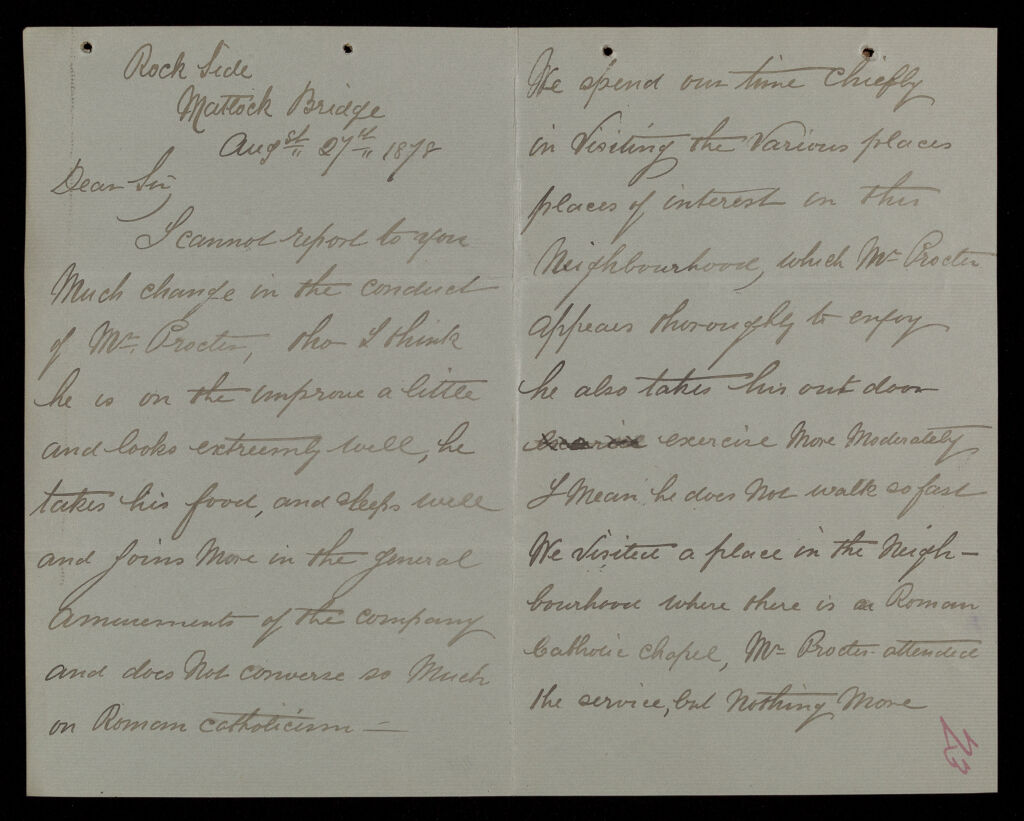 Rock Side
Matlock Bridge
Augst 27th 1878
Dear Sir,
I cannot report to you
Much change in the conduct
of Mr. Procter, tho I think
he is on the improve a little
and looks extreemly well, he
takes his food, and sleeps well
and Joins More in the general
amusements of the company
and does Not converse so Much
on Roman catholicism —
We spend our time chiefly
in Visiting the Various places
places of interest in this
Neighbourhood, which Mr Procter
appears thoroughly to enjoy
he also takes his out door
exercise More Moderately
I Mean he does Not walk so fast
We Visited a place in the Neigh-
bourhood where there is a Roman
Catholic chapel, Mr Procter attended
the service, but Nothing More
23